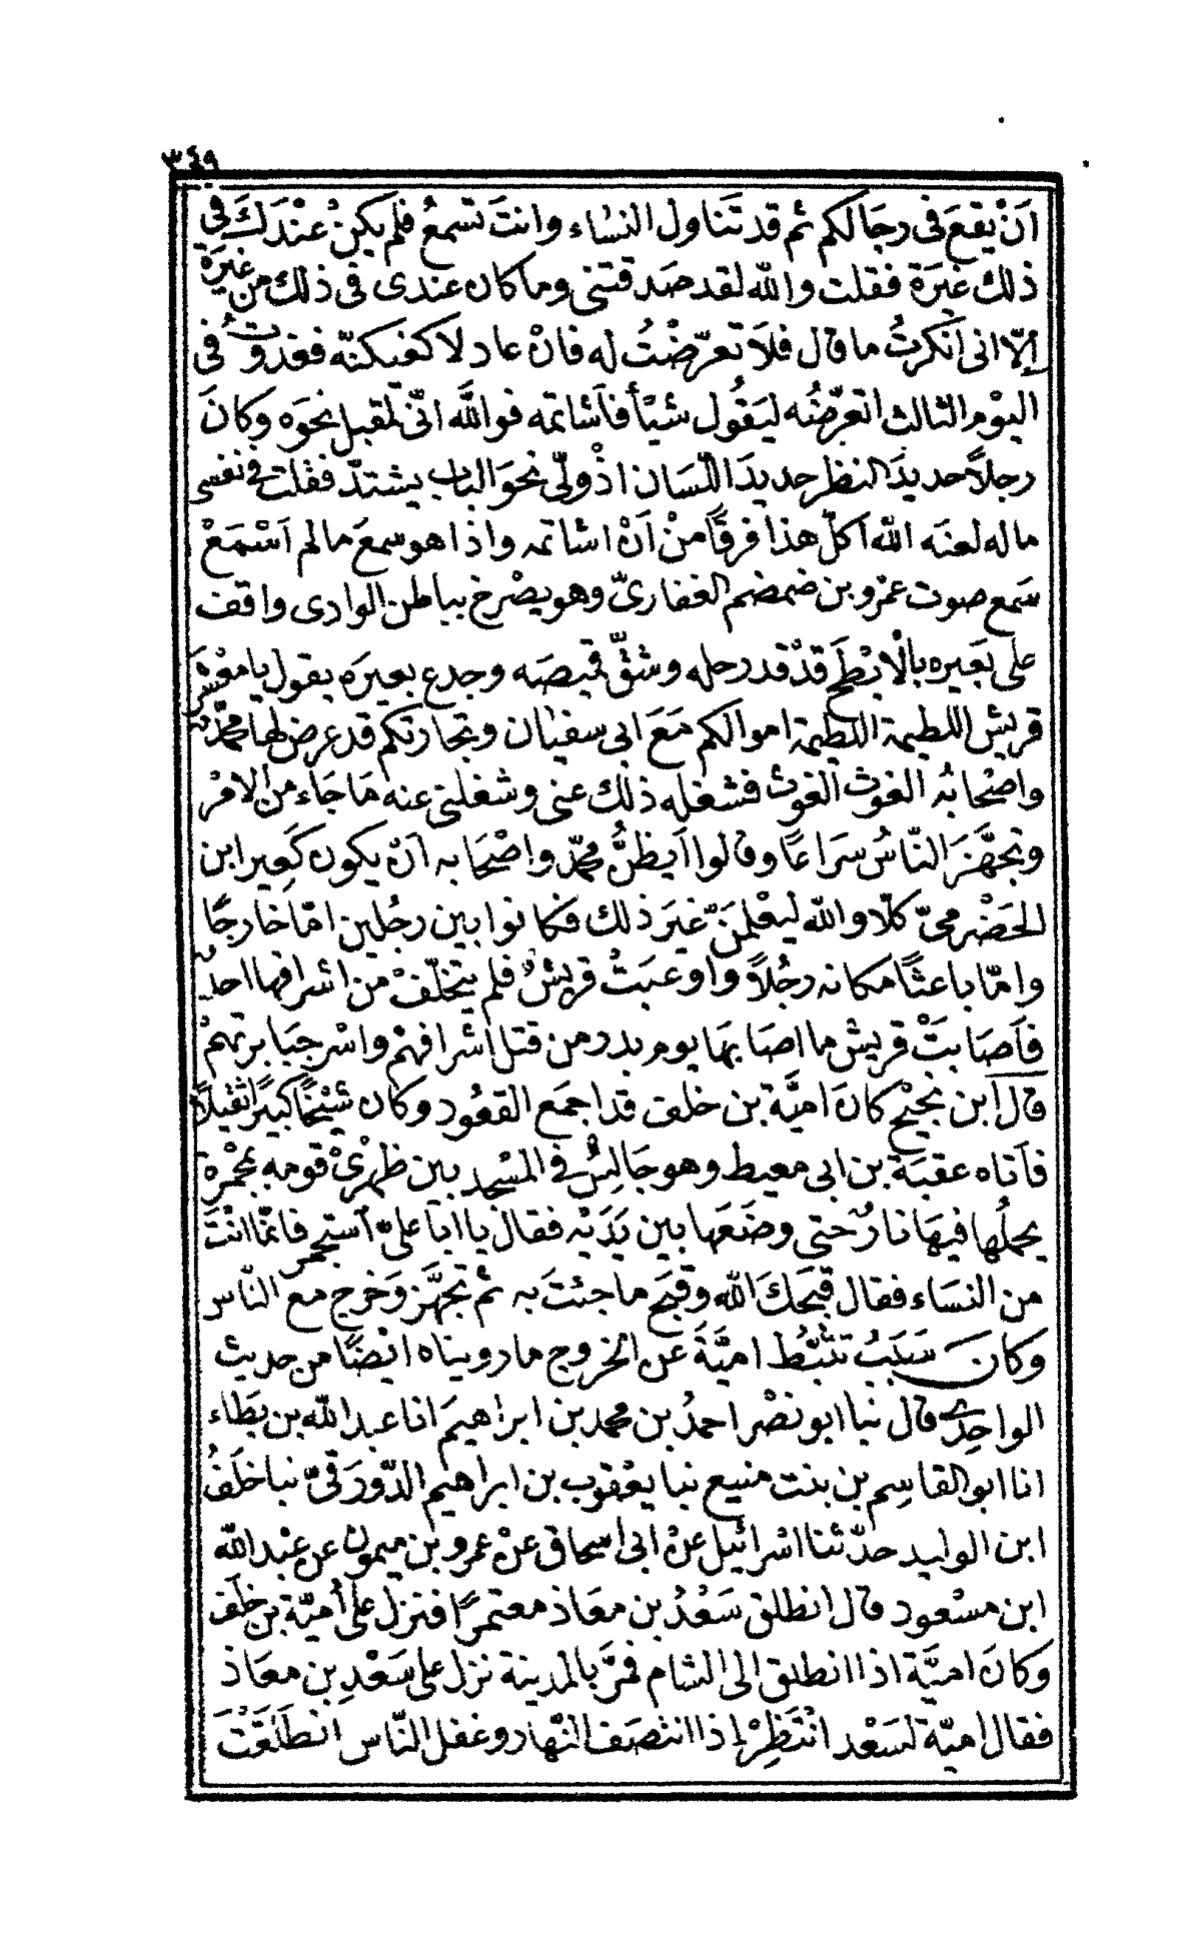 ٣٤٩
اَنْ يقعَ فى رجَالكم ثم قد تَناول النسَاء وانتَ تسْمعُ فلم يكنْ عنْدَكَ فى
ذلك غيَرة فقلت والله لقد صَدقتنى وما كان عندى فى ذلك من غيَرة
اِلّا انى اَنكرتُ ما قال فلاَ تعرّضْتُ له فانْ عاد لاكفيكنّه فغدوتُ فى
اليوْم الثالث اتعرّضُه ليَقُول شيْأً فاَشاتمه فوالله انّى لمقبل نحوَه وكانَ
رجلاً حديدَ النظر حديدَ اللّسَان اذْ ولّى نحوَ الباب يشتدّ فقلت فى نفسى
ما له لعنَه الله اَكلّ هذا فرقًا منْ اَنْ اشاتمه واذا هو سمعَ ما لم اَسْمَعْ
سَمع صوت عمْرو بن ضمضم الغفارىّ وهو يصْرخ بباطن الوادى واقف
على بَعيره بالْاَبْطَح قدْ قد رحله وشقّ قميصَه وجدع بعيرَه يقول يا معْشرَ
قريش اللطيمة اللطيمة اموالكم مَعَ ابى سفيَان وتجارتكم قد عرض لها محمّد
واصْحابُه الغوث الغوث فشغله ذلك عنى وشغلنى عنه مَا جَاء من الامْر
وتجهَّزَ النّاسُ سرَاعًا وقالوا اَيظنُّ محمّد واصْحَابه اَنْ يكون كَعِير ابن
الحَضْرمىّ كلّا والله ليعْلمَنّ غيَر ذلك فكانوا بين رجُلين امّا خارجًا
وامّا باعثًا مكانه رجُلاً واوعبَتْ قريشٌ فلم يتخلّفْ من اشرافها احدٌ
فاَصَابَتْ قريش ما اصَابهَا يوم بدر من قتل اشرافهْم واسْر جبَابرتهمْ
قال ابن نجيْح كانَ اميَّة بن خلف قد اجمَع القعُود وكان شيْخًا كبيرًا ثقيلاً
فاَتاه عقبَة بن ابى معيط وهو جَالِسٌ فى المسْجد بين ظهْرىْ قومه بمجْمرة
يحملُها فيهَا نارٌ حتى وضَعَها بين يَدَيْه فقال يا ابا علىّ اَستجمر فانّما انْتَ
من النسَاء فقال قبحَكَ الله وقبَح ما جئتَ به ثم تجهَّز وَخرج مع النّاس
وكانَ سَبَبُ تثبُّط اميَّةَ عن الخروج ما رويناه ايْضًا من حديث
الواحِدى قال نبا ابو نصْر احمدُ بن محمد بن ابراهيَم انا عبد الله بن بَطاء
انا ابو القاسِم بن بنت منيع نبا يعْقوب بن ابراهيم الدّورَقىّ نبا خلَفُ
ابن الوليد حدّثنا اسْرائيل عنْ ابى اسحاق عنْ عمرو بن ميمون عن عبْد الله
ابن مسْعود قال انطلق سَعْدُ بن معَاذ معتمرًا فنزل على اُميّة بن خلَف
وكانَ اميَّة اذا انطلق الى الشام فمرَّ بالمدينة نزل على سَعْدِ بن معَاذ
فقال اميّة لسَعْد انْتَظِرْ اِذا انتصَف النّهار وغفل النّاس انطلَقَتْ